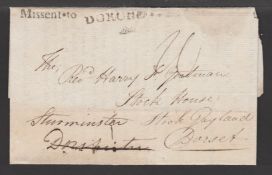 Missent to
DORCHE
The
Revd Harry
Stock House
Sturminster Stock Gayland
Dorchester Dorset